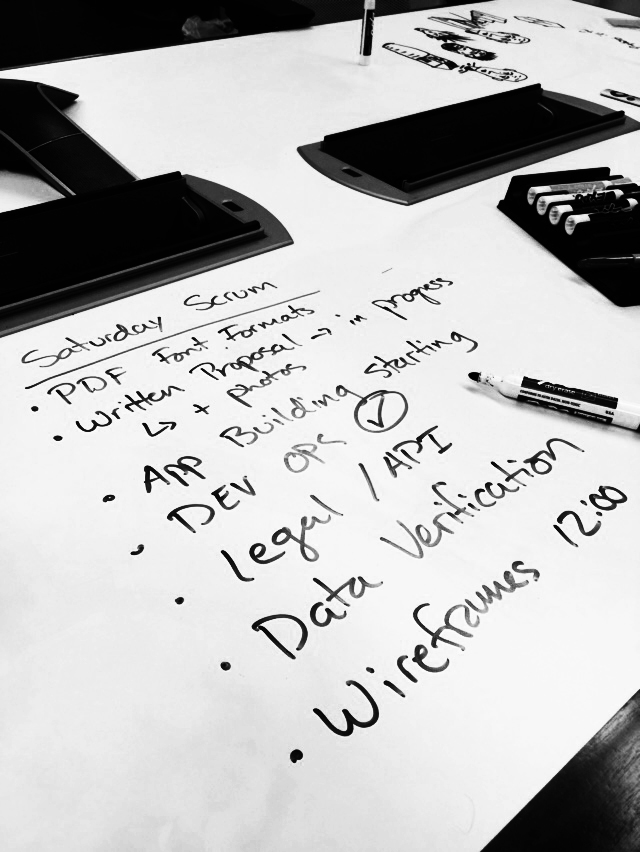 Saturday Scrum
• PDF Font Formats
• Written Proposal → in progress
↳ + photos
• App Building starting
• DEV OPS ✓
• Legal / API
• Data Verification
• Wireframes 12:00